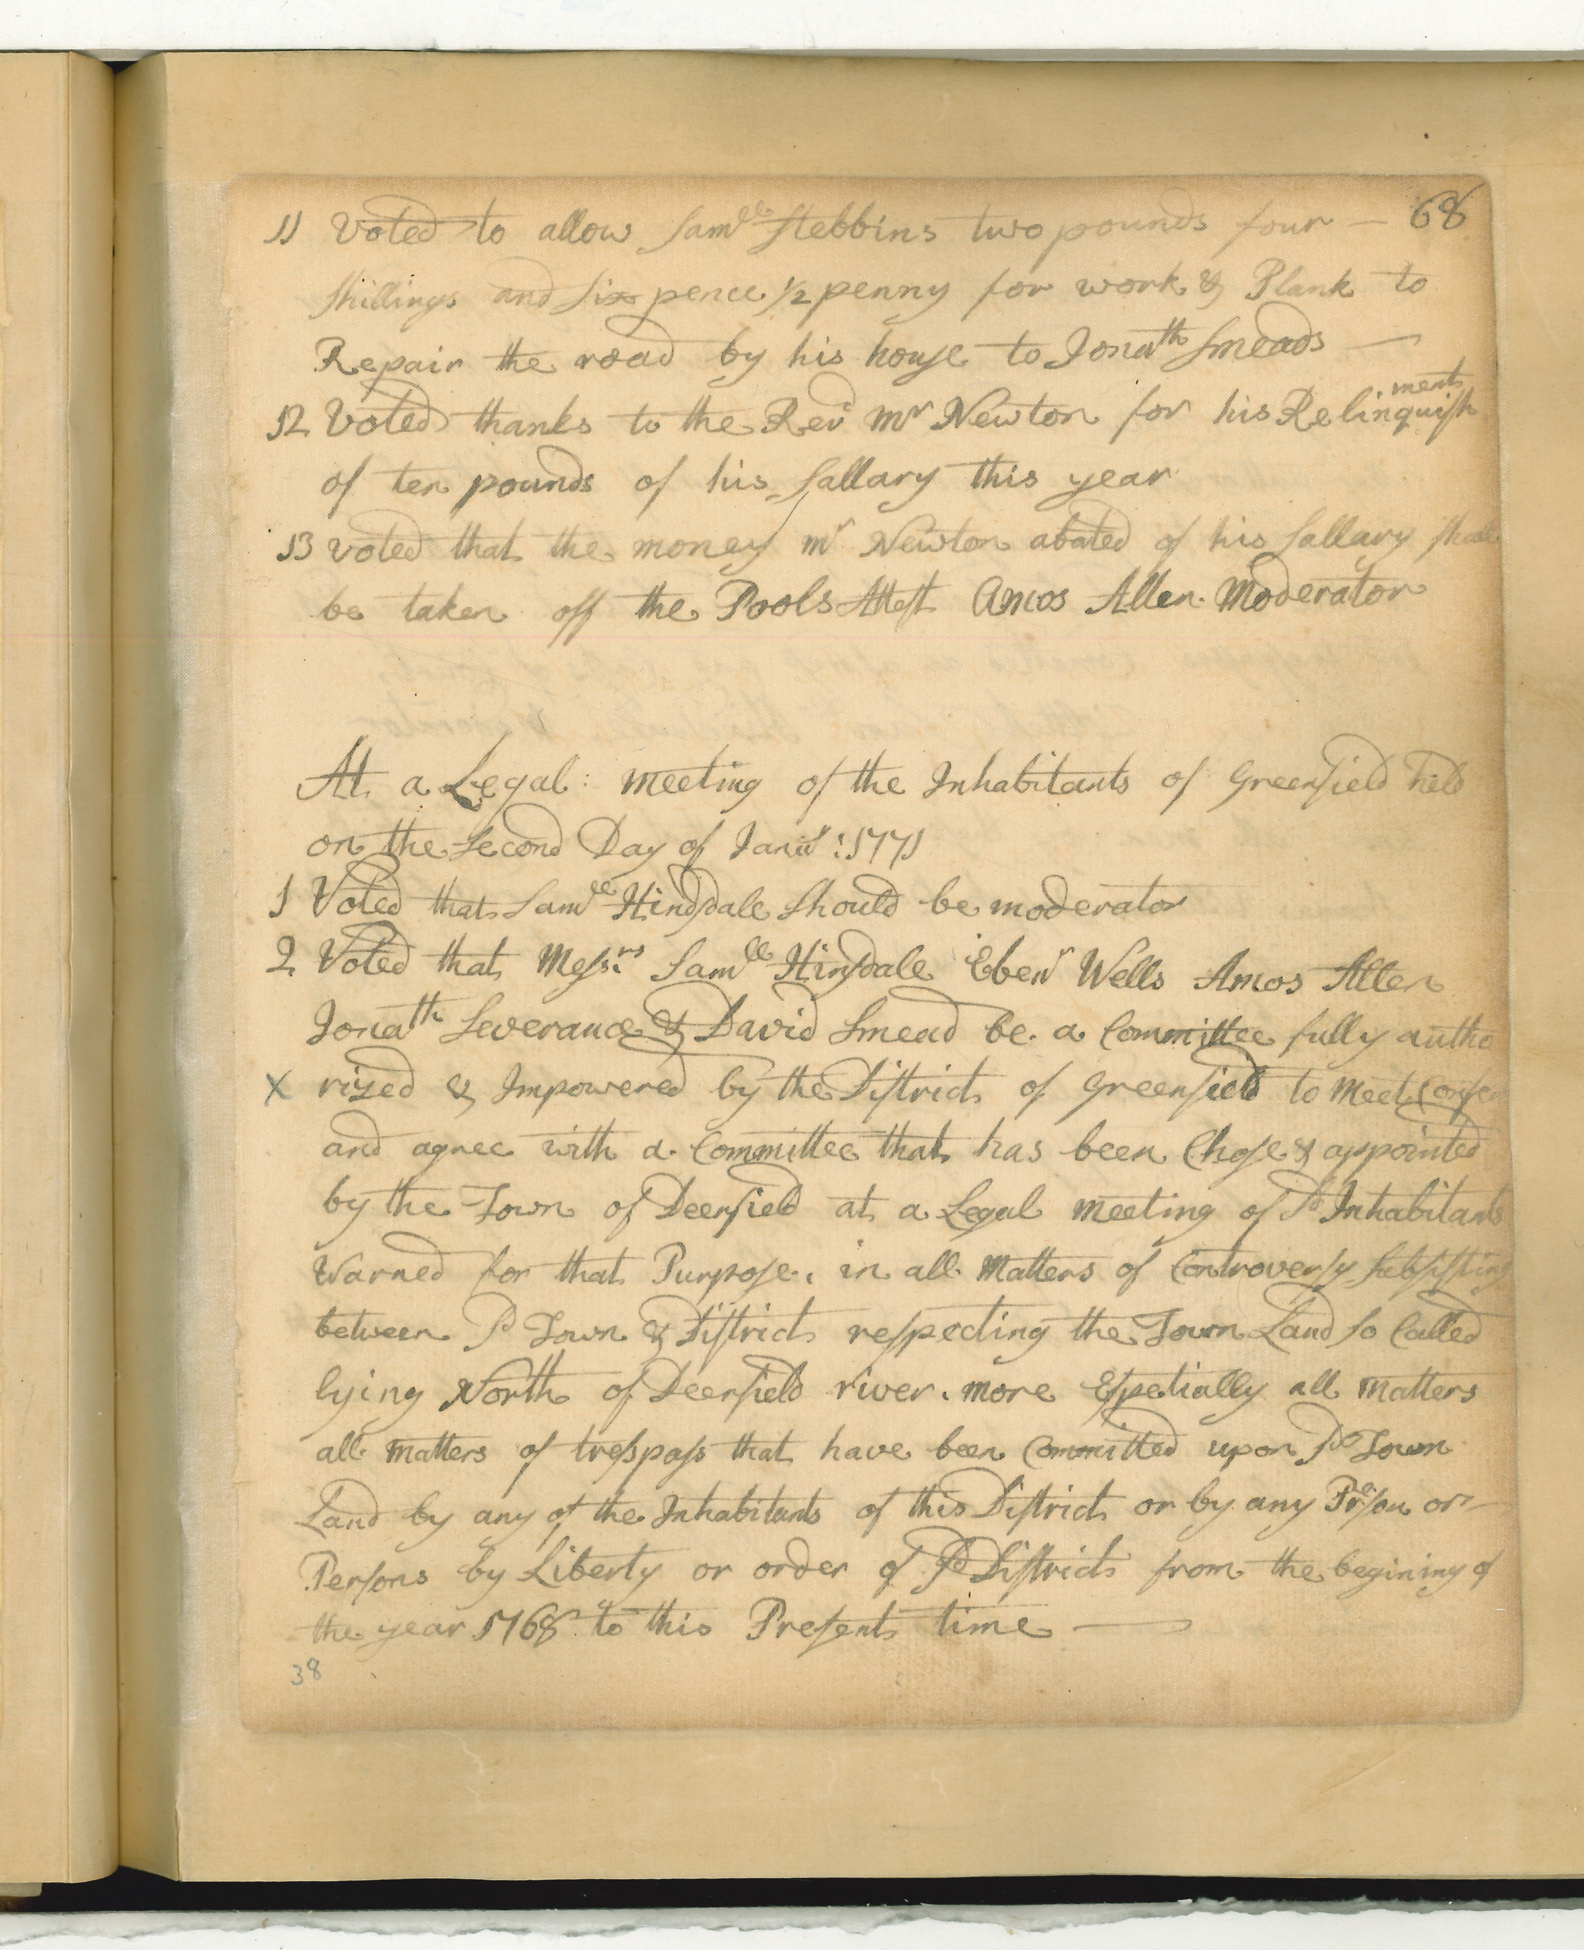 68
11 Voted to allow Samll Stebbins two pounds four —
shillings and six pence 1/2 penny for work & Plank to
Repair the road by his house to Jonath Smeads —
12 Voted thanks to the Revd Mr Newton for his Relinquishment
of ten pounds of his Sallary this year
13 voted that the money mr Newton abated of his Sallary shall
be taken off the Pools Attest Amos Allen Moderator
At a Legal: meeting of the Inhabitants of Greenfield held
on the Second Day of Janur: 1771
1 Voted that Samll Hindsdale Should be moderator
2 Voted that Messrs Samll Hinsdale Ebenr Wells Amos Allen
Jonath Severance & David Smead be a Committee fully autho
X rized & Impowered by the District of Greenfield to meet Confer
and agree with a Committee that has been Chose & appointed
by the Town of Deerfield at a Legal meeting of sd Inhabitants
Warned for that Purpose, in all Matters of Controversy Subsisting
between sd Town & District respecting the Town Land so Called
lying North of Deerfield river. more Espetially all matters
all matters of trespass that have been Committed upon sd Town
Land by any of the Inhabitants of this District or by any Prson or
Persons by Liberty or order of sd District from the begining of
the year 1768 to this Present time —
38